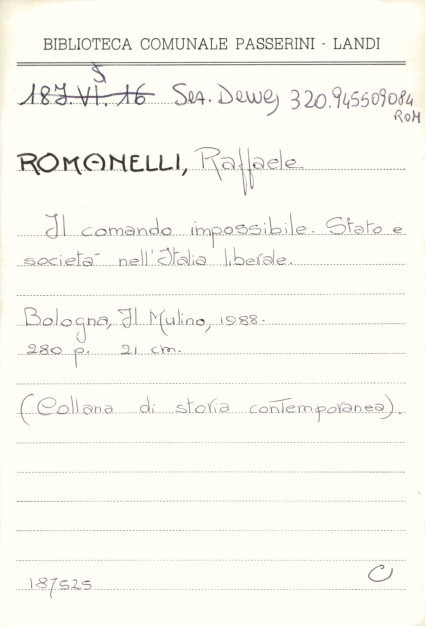 BIBLIOTECA COMUNALE PASSERINI - LANDI
187.VI.16 Sez. Dewey 320.945509084
ROM
ROMANELLI, Raffaele
Il comando impossibile. Stato e
società nell'Italia liberale.
Bologna, Il Mulino, 1988.
280 p. 21 cm.
(Collana di storia contemporanea).
187525 C